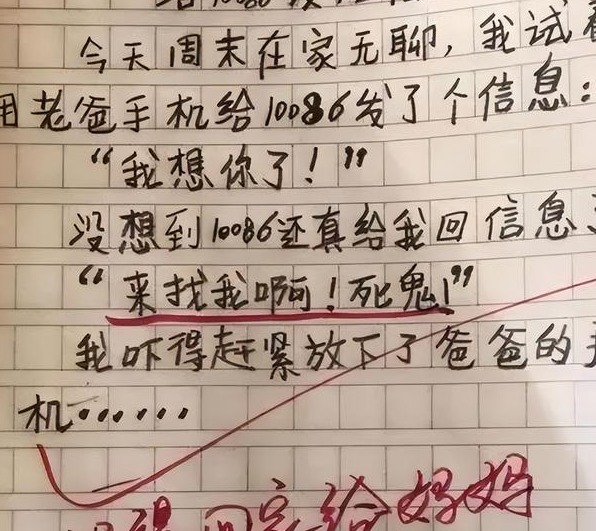 给10086发
今天周末在家无聊，我试着
用老爸手机给10086发了个信息：
“我想你了！”
没想到10086还真给我回信息
“来找我啊！死鬼！”
我吓得赶紧放下了爸爸的手
机……
回家给妈妈